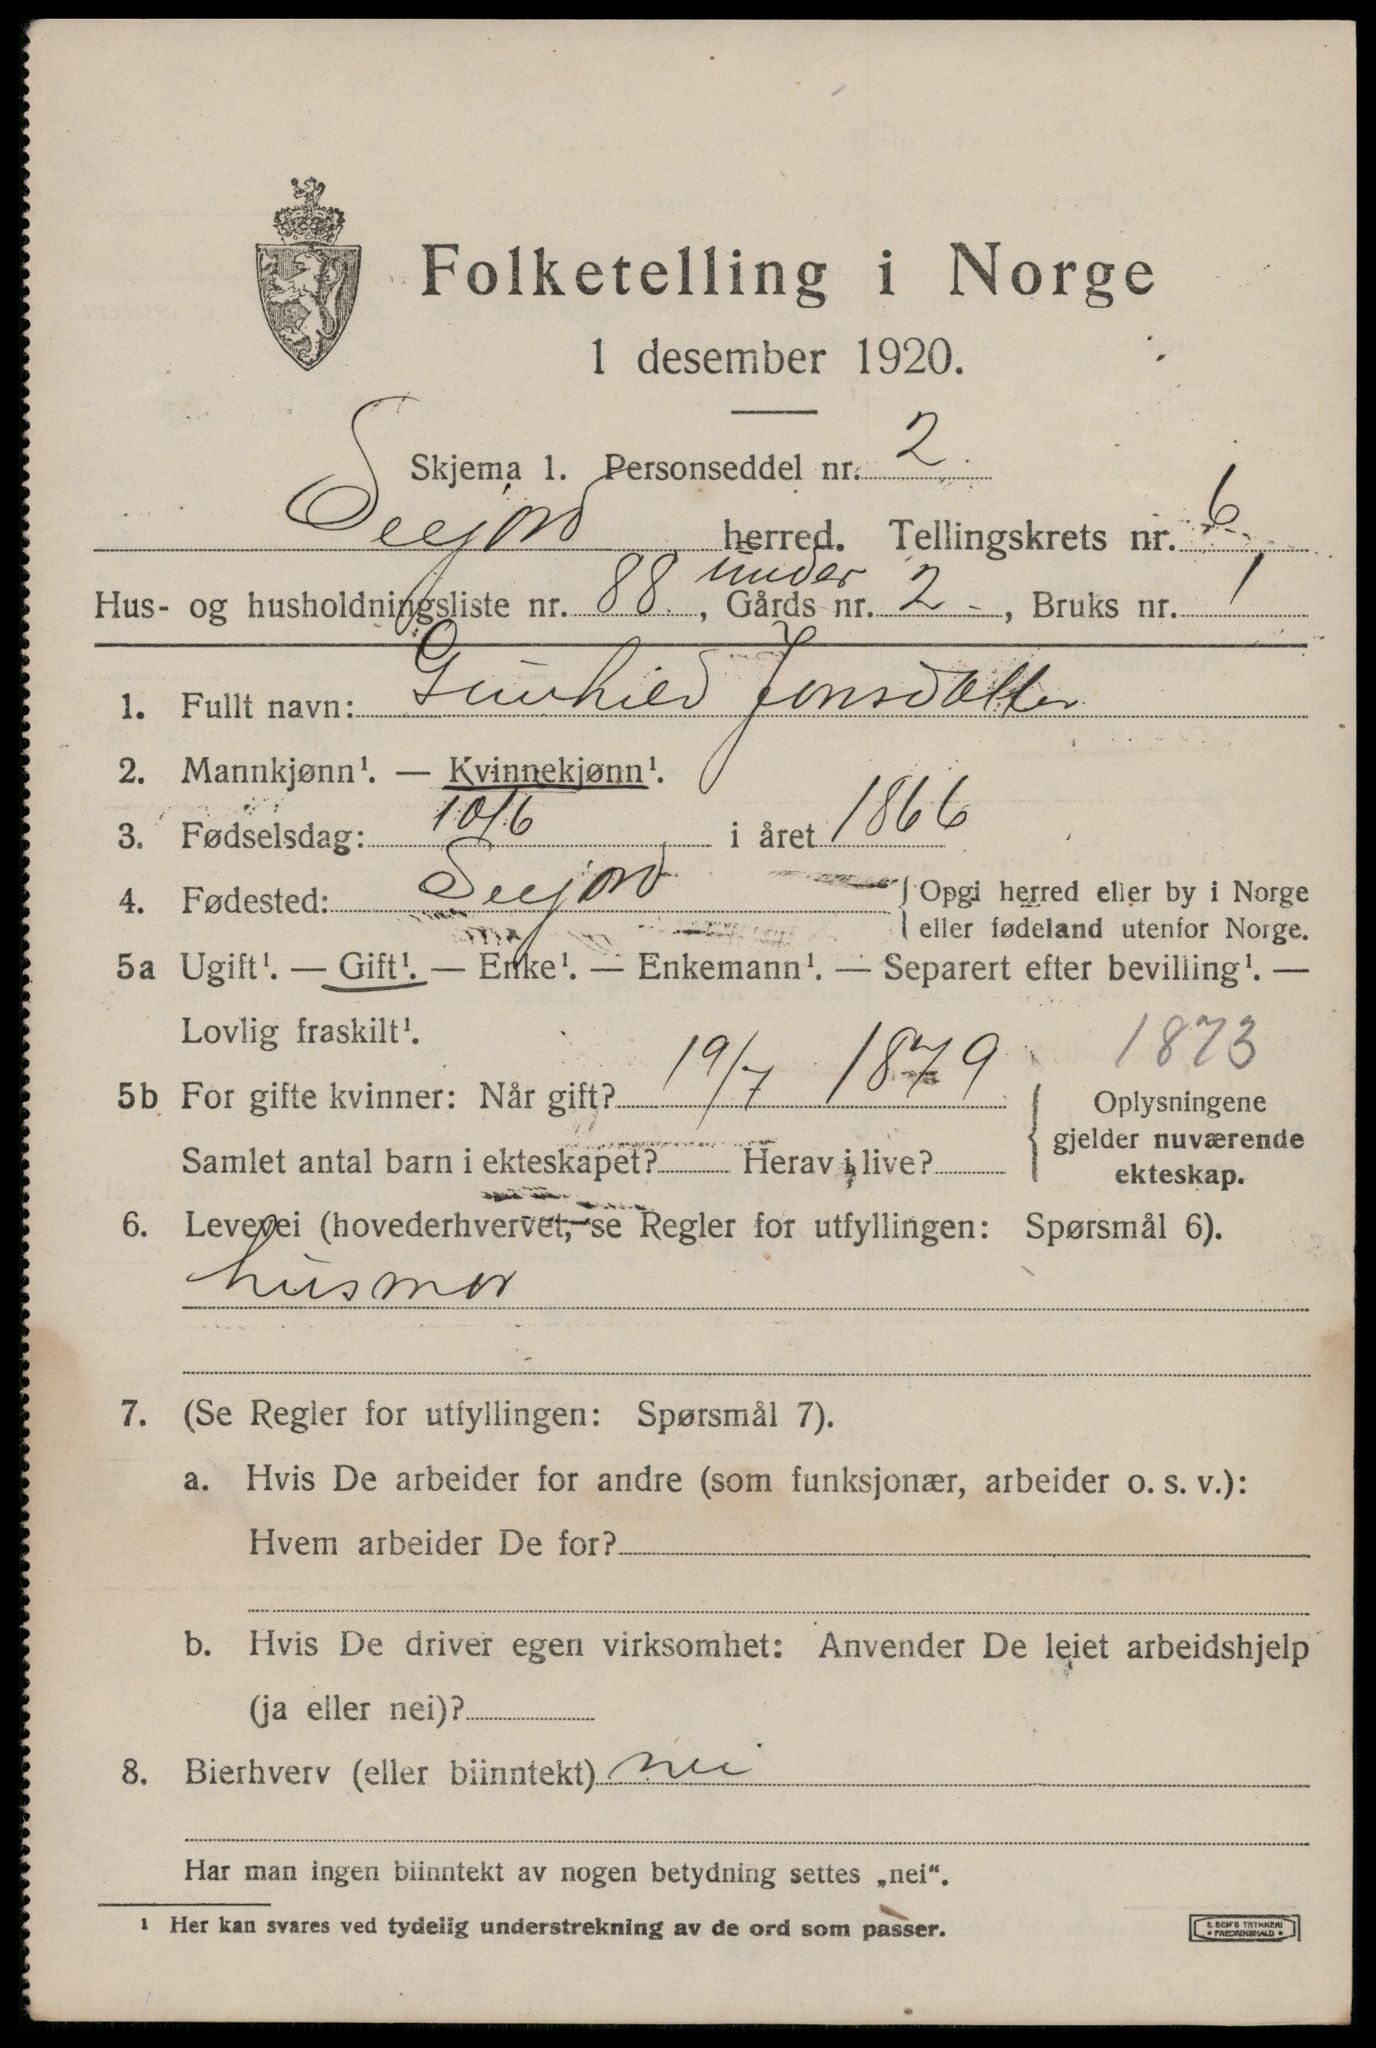 Folketelling i Norge
1 desember 1920.
Skjema 1. Personseddel nr. 2
Seljord herred. Tellingskrets nr. 6
under
Hus- og husholdningsliste nr. 88, Gårds nr. 2, Bruks nr. 1
1. Fullt navn: Gunhild Jonsdatter
2. Mannkjønn¹. — Kvinnekjønn¹.
3. Fødselsdag: 10/6 i året 1866
4. Fødested: Seljord { Opgi herred eller by i Norge
eller fødeland utenfor Norge.
5a Ugift¹. — Gift¹. — Enke¹. — Enkemann¹. — Separert efter bevilling¹. —
Lovlig fraskilt¹.
1873
5b For gifte kvinner: Når gift? 19/7 1879
Oplysningene
gjelder nuværende
ekteskap.
Samlet antal barn i ekteskapet? Herav i live?
6. Levevei (hovederhvervet, se Regler for utfyllingen: Spørsmål 6).
husmor
7. (Se Regler for utfyllingen: Spørsmål 7).
a. Hvis De arbeider for andre (som funksjonær, arbeider o. s. v.):
Hvem arbeider De for?
b. Hvis De driver egen virksomhet: Anvender De leiet arbeidshjelp
(ja eller nei)?
8. Bierhverv (eller biinntekt) nei
Har man ingen biinntekt av nogen betydning settes „nei“.
¹ Her kan svares ved tydelig understrekning av de ord som passer.
E. SEM'S TRYKKERI
FREDRIKSHALD